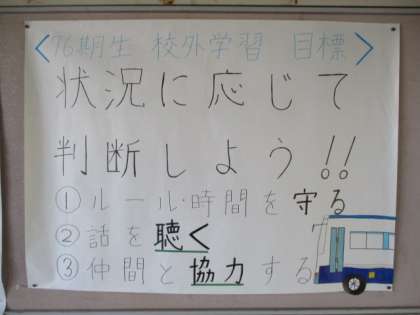 <76期生 校外学習 目標>
状況に応じて
判断しよう!!
①ルール・時間を守る
②話を聴く
③仲間と協力する